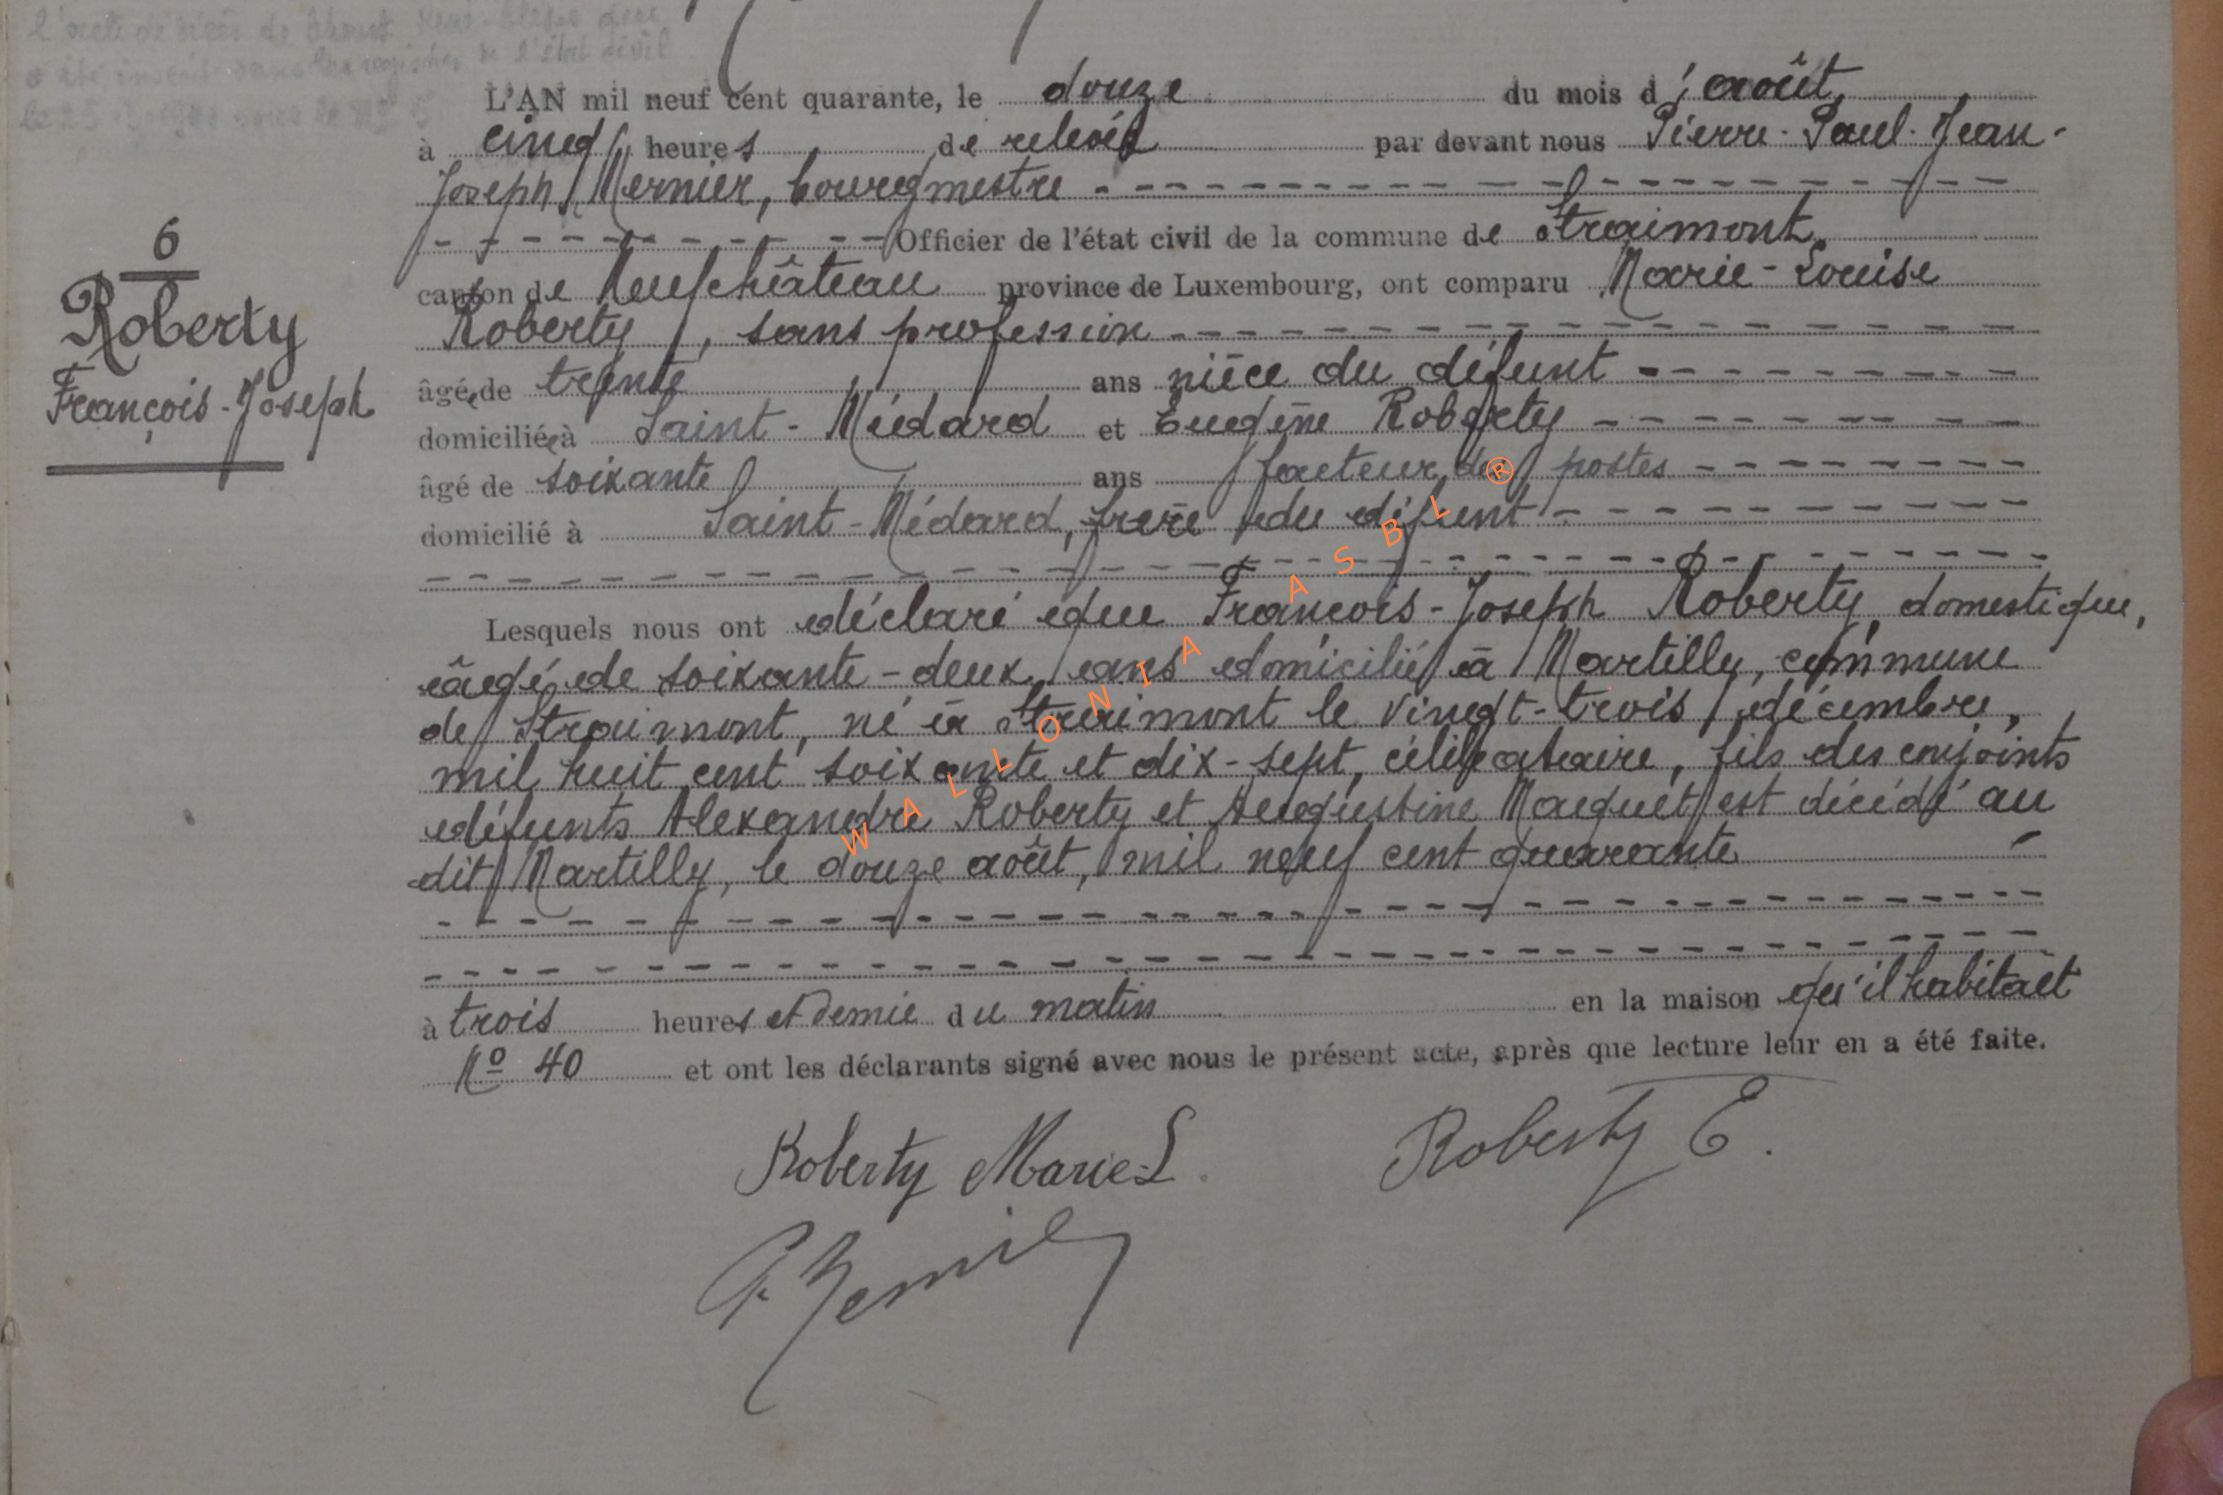 l'acte de décès de
a été inscrit dans les registres de l'état civil
L'AN mil neuf cent quarante, le douze du mois d'août,
à cinq heures de relevée par devant nous Pierre-Paul-Jean-
Joseph Mernier, bourgmestre
Officier de l'état civil de la commune de Straimont,
canton de Neufchâteau province de Luxembourg, ont comparu Marie-Louise
Roberty, sans profession
âgée de trente ans nièce du défunt
domiciliée à Saint-Médard et Eugène Roberty
âgé de soixante ans facteur des postes
domicilié à Saint-Médard, frère du défunt
Lesquels nous ont déclaré que François-Joseph Roberty, domestique,
âgé de soixante-deux ans domicilié à Martilly, commune
de Straimont, né à Straimont le vingt-trois décembre,
mil huit cent soixante et dix-sept, célibataire, fils des conjoints
défunts Alexandre Roberty et Augustine Maquet est décédé au
dit Martilly, le douze août, mil neuf cent quarante
à trois heures et demie du matin en la maison qu'il habitait
No 40 et ont les déclarants signé avec nous le présent acte, après que lecture leur en a été faite.
Roberty Marie-L. Roberty E.
6
Roberty
François-Joseph
WALLONIA ASBL ®